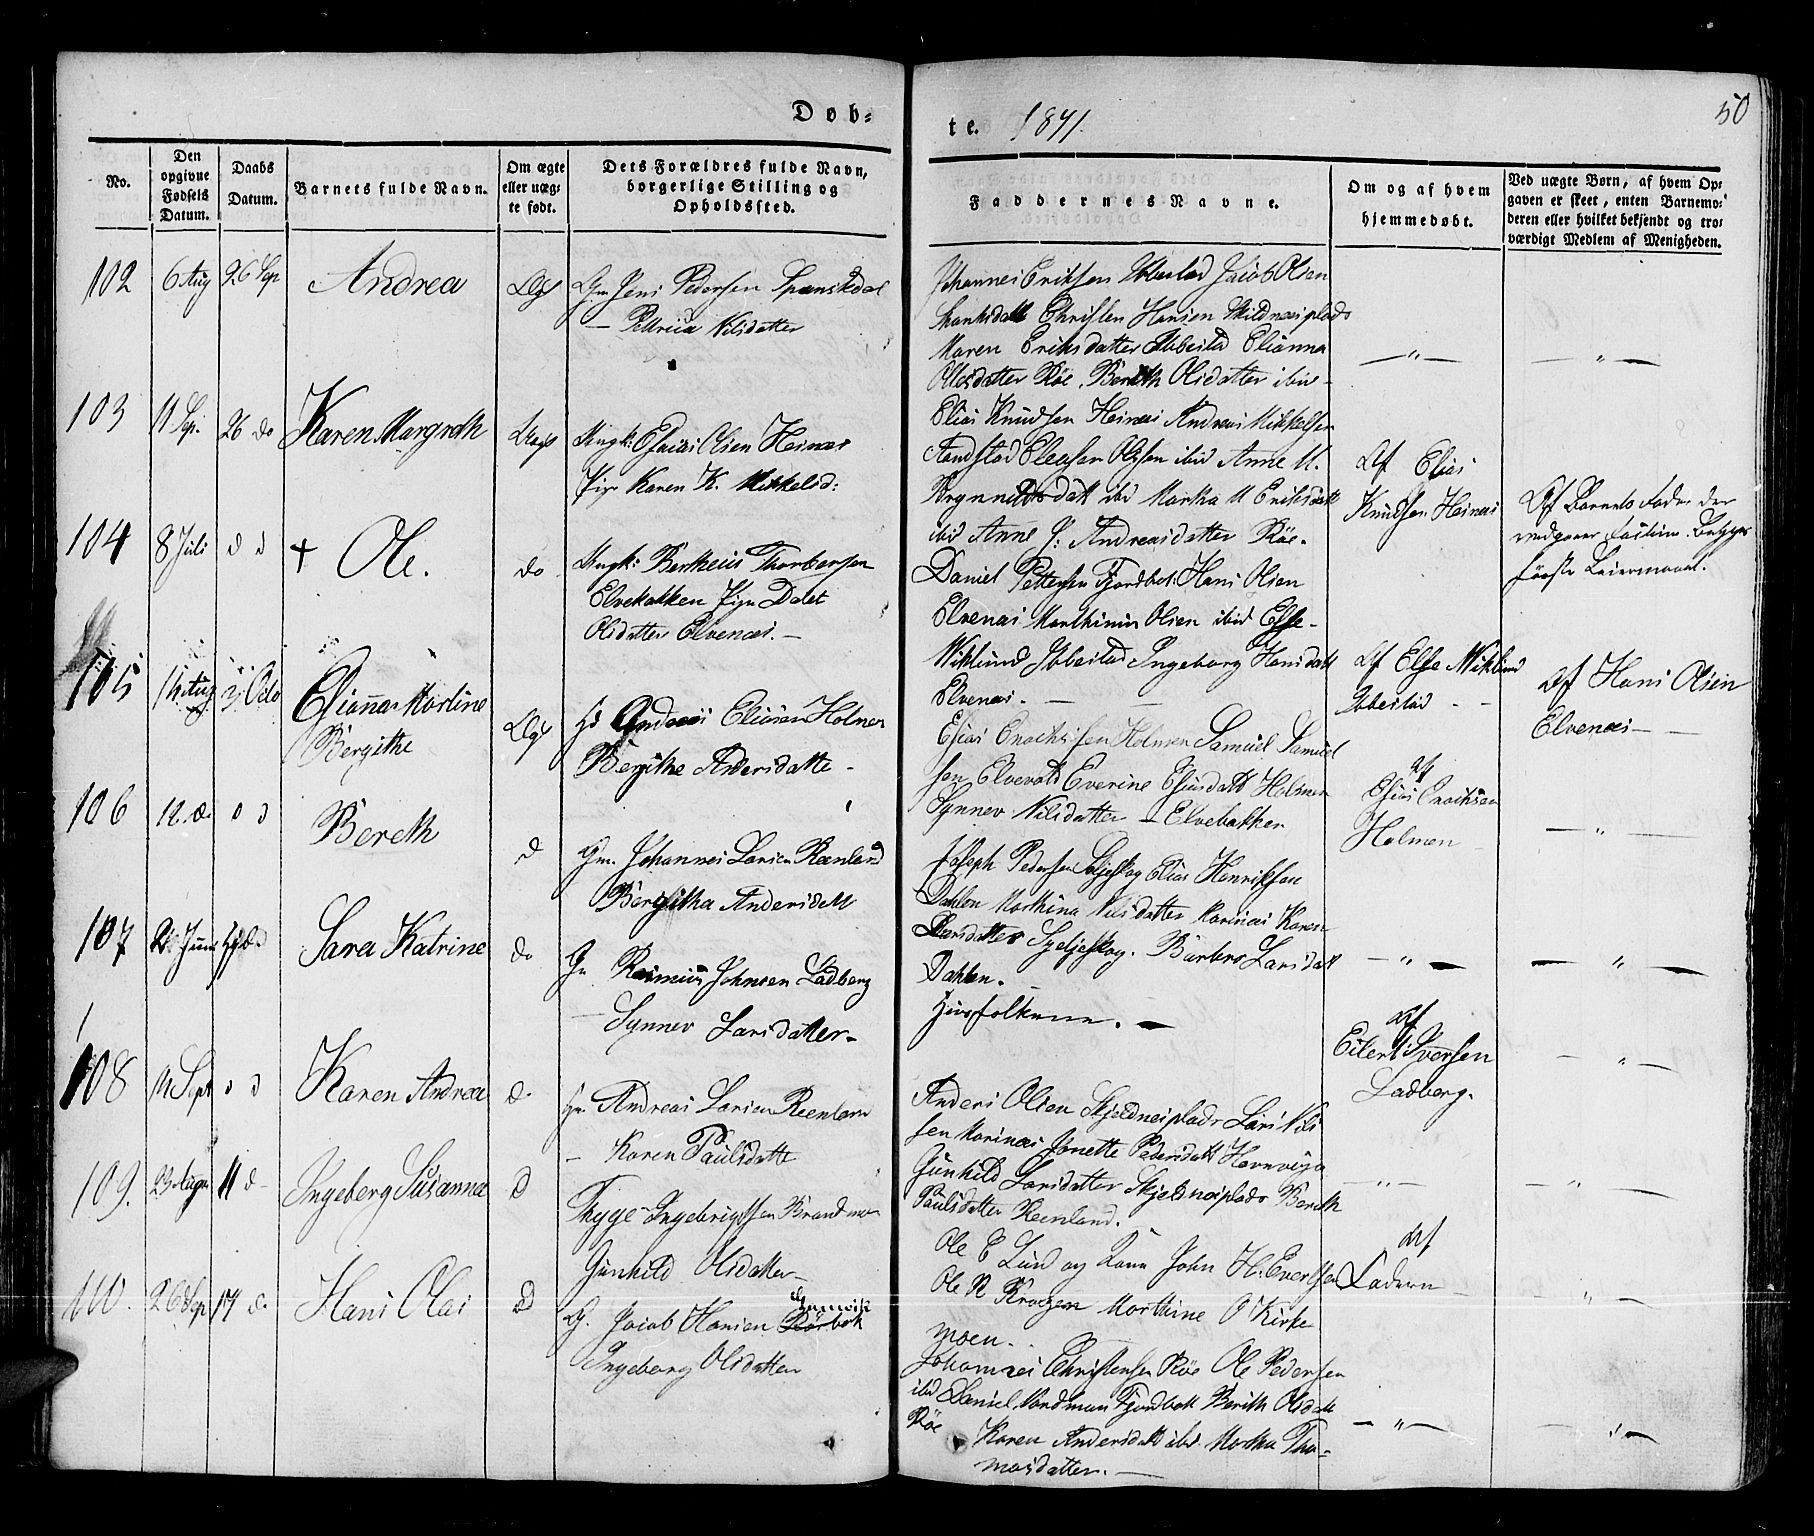 Døb-
te. 1841.
50
No.
Den opgivne Fødsels Datum.
Daabs Datum.
Barnets fulde Navn.
Om ægte eller uægte født.
Dets Forældres fulde Navn, borgerlige Stilling og Opholdssted.
Faddernes Navne.
Om og af hvem hjemmedøbt.
Ved uægte Børn, af hvem Opgaven er skeet, enten Barnemoderen eller hvilket bekjendt og troværdigt Medlem af Menigheden.
102 6 Aug 26 Sep Andrea
Gm Jens Pedersen Spanskdal
— Nilsdatter
Johannes Eriksen Ibbestad Jacob Olsen
Christen Hansen
Maren Eriksdatter Ibbestad Elianna
Olesdatter Røe. Bereth Olsdatter ibid-
— " —
— " —
103 11 Sep. 26 do Karen Margreth
Ungk: Esaias Olsen Heinæs
Pige Karen K. Mikkelsd:
Elias Knudsen Heinæs Andreas Mikkelsen
Olsen ibid Anne M.
ibd Martha M Eriksdatt
ibid Anne P: Andreasdatter Røe-
Af Elias
Knudsen Heinæs
Af Barnets Fader der
første Leiermaal.
104 8 Juli d d + Ole.
do
Ungk: Bertheus Thorbersen
Elvebakken Pige Dalet
Olsdatter Elvenæs. —
Daniel Pettersen Fjordbot: Hans Olsen
Elvenæs Marthinus Olsen ibid Else
Wiklund Ibbestad Ingeborg Hansdatt
Elvenæs. — —
Af Else Wiklund
Ibbestad - -
Af Hans Olsen
Elvenæs — -
105 14 Aug 3 Octo Elianna Martine
Bergithe
Andreas Eliasen Holmen
Bergithe Andersdatte -
Esias Enochssen Holmen Samuel Samuel
sen Elvevold Everine Esaiasdatt Holmen
Synnev Nilsdatter — Elvebakken
Af
Esias Enochsen
Holmen
— " —
106 12. d. d d Bereth
d
Gm. Johannes Larsen Reenland
Bergitha Andersdatt
Joseph Pedersen Seljeskog Elias Henriksen
Dahlen Marthina Nilsdatter Marinæs Karen
Larsdatter Sgeljeskog. Barbro Larsdatt
Dahlen.
— " —
— " —
107 Juni d Sara Katrine
do
Rasmus Johnsen Ladberg
— Synnev Larsdatter-
Huusfolkene. —
Af
Eilert Iversen
Ladberg.
— " —
108 11 Sept d d Karen Andrea
d.
Andreas Larsen Reenland
— Karen Paulsdatte
Anders Olsen Skjeldnesplads Lars Nils
sen Marinæs Jonette Pedersdatt Havnvigo
Gunhild Larsdatter Skjeldnesplads Bereth
Paulsdatter Reenland.
— " —
— " —
109. 23 August 11 d- Ingeberg Susanna
d
Thyge Ingebrigtsen Brandmo
Gunhild Olsdatter-
Ole E Lund og Kone John H. Evertsen
Ole R Krogen Marthine O Kirke
moen.
Af
Faderen
— " —
110. 26 Sep 17 d. Hans Olai
d
Jacob Hansen Rørbak
Ingeborg Olsdatter
Johannes Christensen Røe Ole Pedersen
ibd Daniel Nordman Fjordbott Berith Olsdatt
Røe Karen Andersdatt ibd Martha Tho-
masdatter. —
— " —
— " —